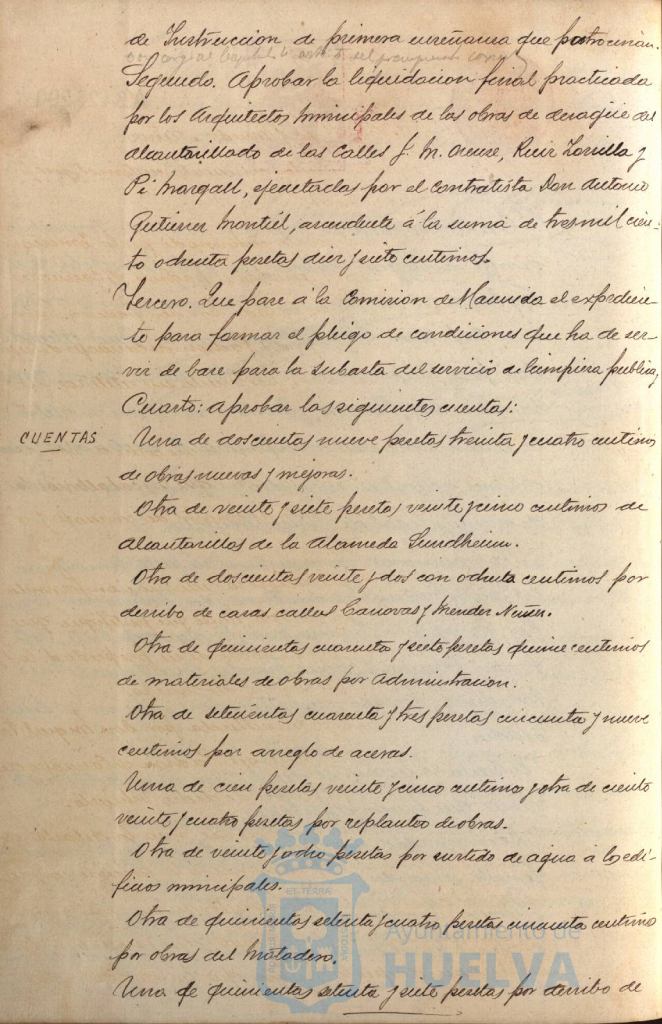 de Instruccion de primera enseñanza que patrocinan.
Segundo. Aprobar la liquidacion final practicada
por los Arquitectos municipales de las obras de desagüe del
alcantarillado de las Calles J. M. Orense, Ruiz Zorrilla y
Pi Margall, ejecutadas por el contratista Don Antonio
Gutierrez Montiel, ascendente á la suma de tres mil cien-
to ochenta pesetas diez y siete centimos.
Tercero. Que pase á la Comision de Hacienda el expedien-
te para formar el pliego de condiciones que ha de ser-
vir de base para la subasta del servicio de limpieza publica,
Cuarto: aprobar las siguientes cuentas:
CUENTAS
Una de doscientas nueve pesetas treinta y cuatro centimos
de obras nuevas y mejoras.
Otra de veinte y siete pesetas veinte y cinco centimos de
alcantarillas de la Alameda Sundheim.
Otra de doscientas veinte y dos con ochenta centimos por
derribo de casas calles Canovas y Mendez Nuñez.
Otra de quinientas cuarenta y siete pesetas quince centimos
de materiales de obras por administracion.
Otra de setecientas cuarenta y tres pesetas cincuenta y nueve
centimos por arreglo de aceras.
Una de cien pesetas veinte y cinco centimos y otra de ciento
veinte y cuatro pesetas por replanteo de obras.
Otra de veinte y ocho pesetas por surtido de agua á los edi-
ficios municipales.
Otra de quinientas setenta y cuatro pesetas cincuenta centimos
por obras del Matadero.
Una de quinientas setenta y siete pesetas por derribo de
Ayuntamiento de
HUELVA